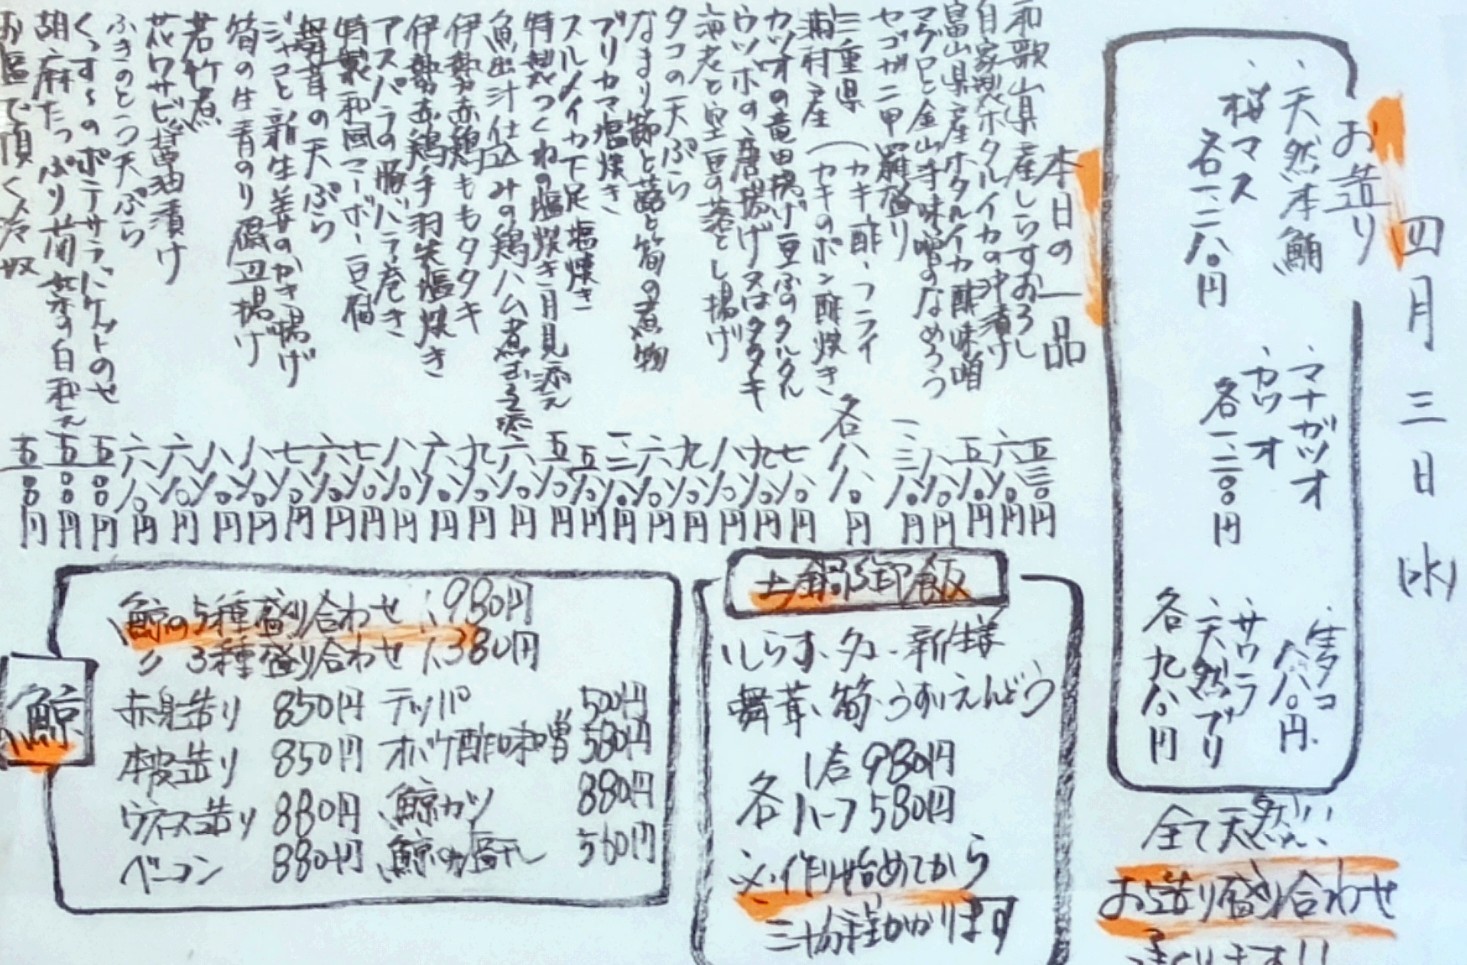 四月三日(水)
お造り
・天然本鮪
・桜マス
各一、二八〇円
・マナガツオ
・カツオ
各一、二〇〇円
・生タコ
八八〇円
・サワラ
・天然ブリ
各九八〇円
全て天然!!
お造り盛り合わせ
承ります!!
本日の一品
和歌山県産しらすおろし 五三〇円
自家製ホタルイカの沖漬け 六八〇円
富山県産ホタルイカ酢味噌 五八〇円
マグロと金山寺味噌のなめろう 八八〇円
セコガニ甲羅盛り
三重県
浦村産
(カキ酢・フライ
(カキのポン酢焼き
各八八〇円
カツオの竜田揚げ豆ふのタルタル 七八〇円
ウツボの唐揚げ又はタタキ 九八〇円
海老と空豆の落とし揚げ 八八〇円
タコの天ぷら 九八〇円
なまり節と蕗と筍の煮物 六八〇円
ブリカマ塩焼き
スルメイカ下足塩焼き 五八〇円
特製つくねの塩焼き月見添え 五八〇円
魚出汁仕込みの鶏ハム煮玉子添え 六八〇円
伊勢赤鶏ももタタキ 九八〇円
伊勢赤鶏手羽先塩焼き 六八〇円
アスパラの豚バラ巻き 八八〇円
特製和風マーボー豆腐 七八〇円
舞茸の天ぷら 六八〇円
ジャコと新生姜のかき揚げ 七八〇円
筍の生青のり磯辺揚げ 八八〇円
若竹煮 八八〇円
花ワサビ醤油漬け 六八〇円
ふきのとう天ぷら 六八〇円
くっすんのポテサラバケットのせ 五〇〇円
胡麻たっぷり菊菜の白和え 五〇〇円
お塩で頂く冷奴 五〇〇円
土鍋御飯
しらす、タコ、新生姜
舞茸、筍、うすいえんどう
各
1合 980円
ハーフ 580円
※作り始めてから
三十分程かかります
鯨
鯨の5種盛り合わせ 1,980円
〃 3種盛り合わせ 1,380円
赤身造り 850円
本皮造り 850円
ウネス造り 880円
ベーコン 880円
テッパ 500円
オバケ酢味噌 580円
鯨カツ 880円
鯨の塩干し 560円